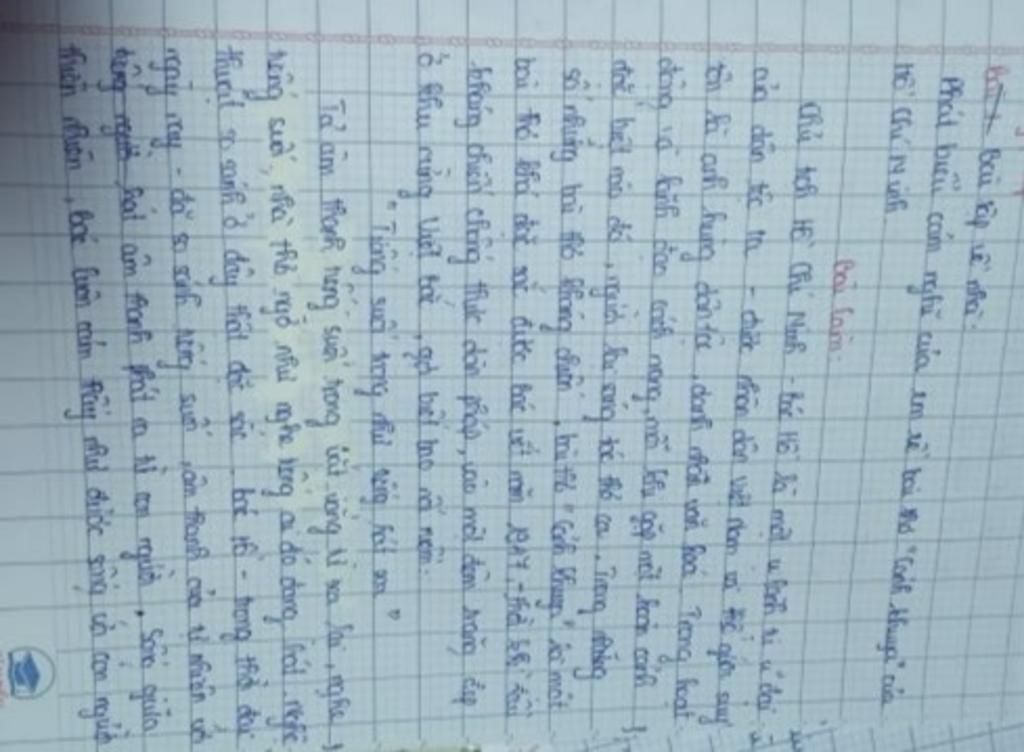 Bài tập về nhà:
Phát biểu cảm nghĩ của em về bài thơ "Cảnh khuya" của
Hồ Chí Minh
Bài làm:
Chủ tịch Hồ Chí Minh - Bác Hồ là một vị lãnh tụ vĩ đại
của dân tộc ta - được nhân dân Việt Nam và thế giới suy
tôn là anh hùng dân tộc, danh nhân văn hoá. Trong hoạt
động và lãnh đạo cách mạng, mỗi khi gặp một hoàn cảnh
đặc biệt nào đó, người lại sáng tác thơ ca. Trong những
số những bài thơ kháng chiến, bài thơ "Cảnh khuya" là một
bài thơ khá đặc sắc được Bác viết năm 1947, - thời kì đầu
kháng chiến chống thực dân Pháp, vào một đêm trăng đẹp
ở khu rừng Việt Bắc, gợi biết bao nỗi niềm.
"Tiếng suối trong như tiếng hát xa"
Tả âm thanh tiếng suối trong vắt vọng từ xa lại, nghe
tiếng suối, nhà thơ ngỡ như nghe tiếng ai đó đang hát. Nghệ
thuật so sánh ở đây thật đặc sắc. Bác Hồ - trong thời đại
ngày nay - đã so sánh tiếng suối, âm thanh của tự nhiên với
tiếng người hát âm thanh phát ra từ con người. Sống giữa
thiên nhiên, Bác luôn cảm thấy như được sống với con người